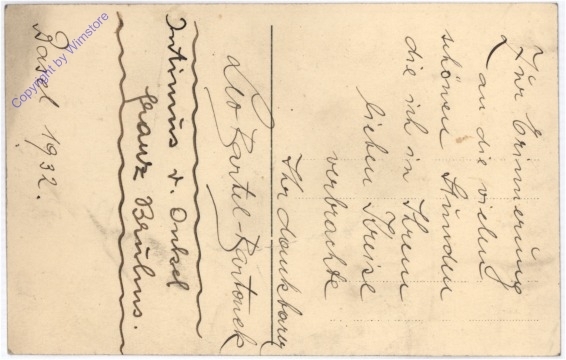 Zur Erinnerung
an die vielen
schönen Stunden
die ich in Ihrem
lieben Kreise
verbrachte
Ihr dankbarer
Leo
Intimus v. Onkel
Franz Bruhns.
Basel 1932.
Copyright by Wimstore